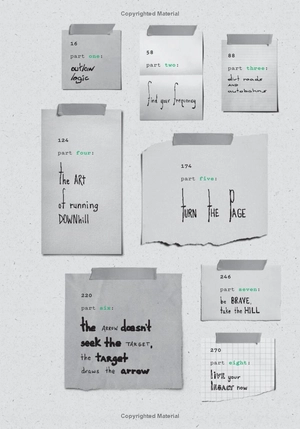 Copyrighted Material
16
part one:
outlaw
logic
58
part two:
find your frequency
88
part three:
dirt roads
and
autobahns
124
part four:
the ART
of running
DOWNhill
174
part five:
TURN THE PAGE
220
part six:
the ARROW doesn't
seek the TARGET,
the target
draws the arrow
246
part seven:
be BRAVE,
take the HILL
270
part eight:
LIVE your
LEGACY now
Copyrighted Material